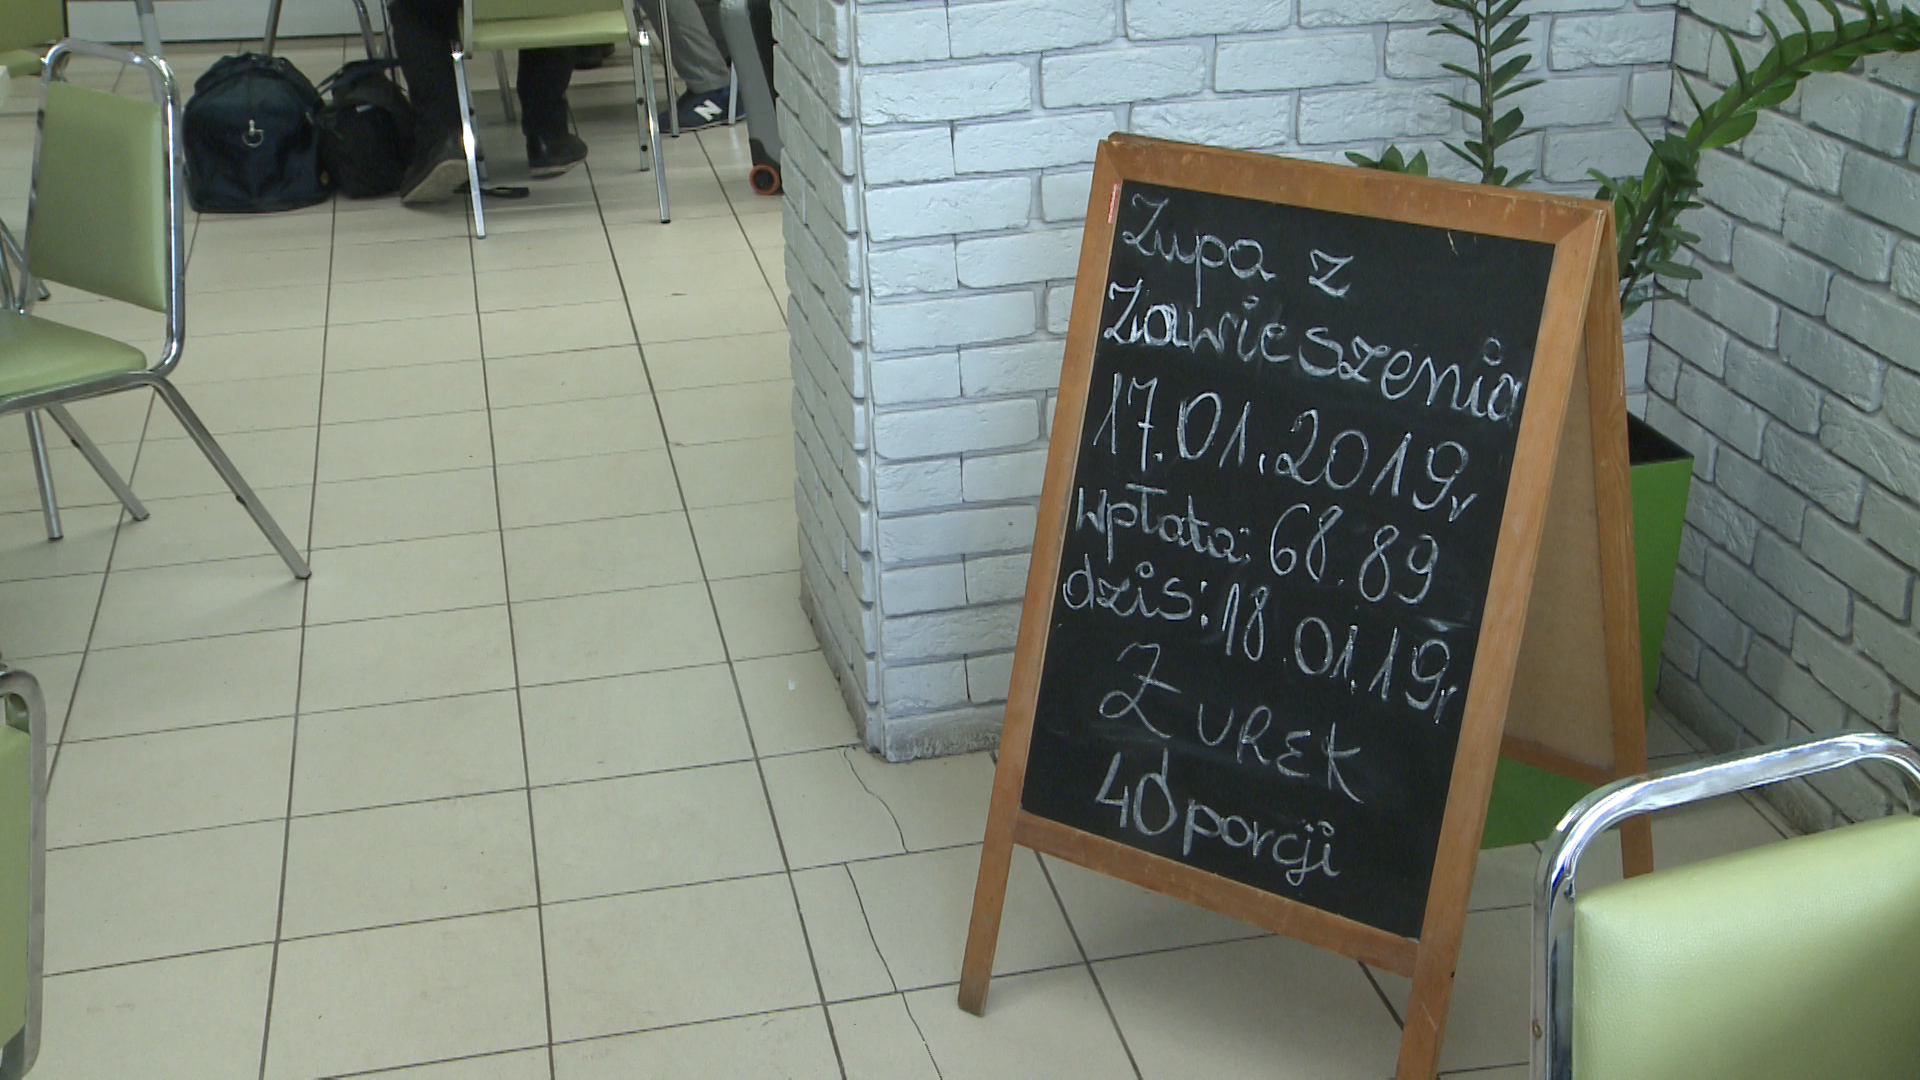 Zupa z
Zawieszenia
17.01.2019r
wpłata: 68.89
dzis: 18.01.19r
ZUREK
40 porcji
N